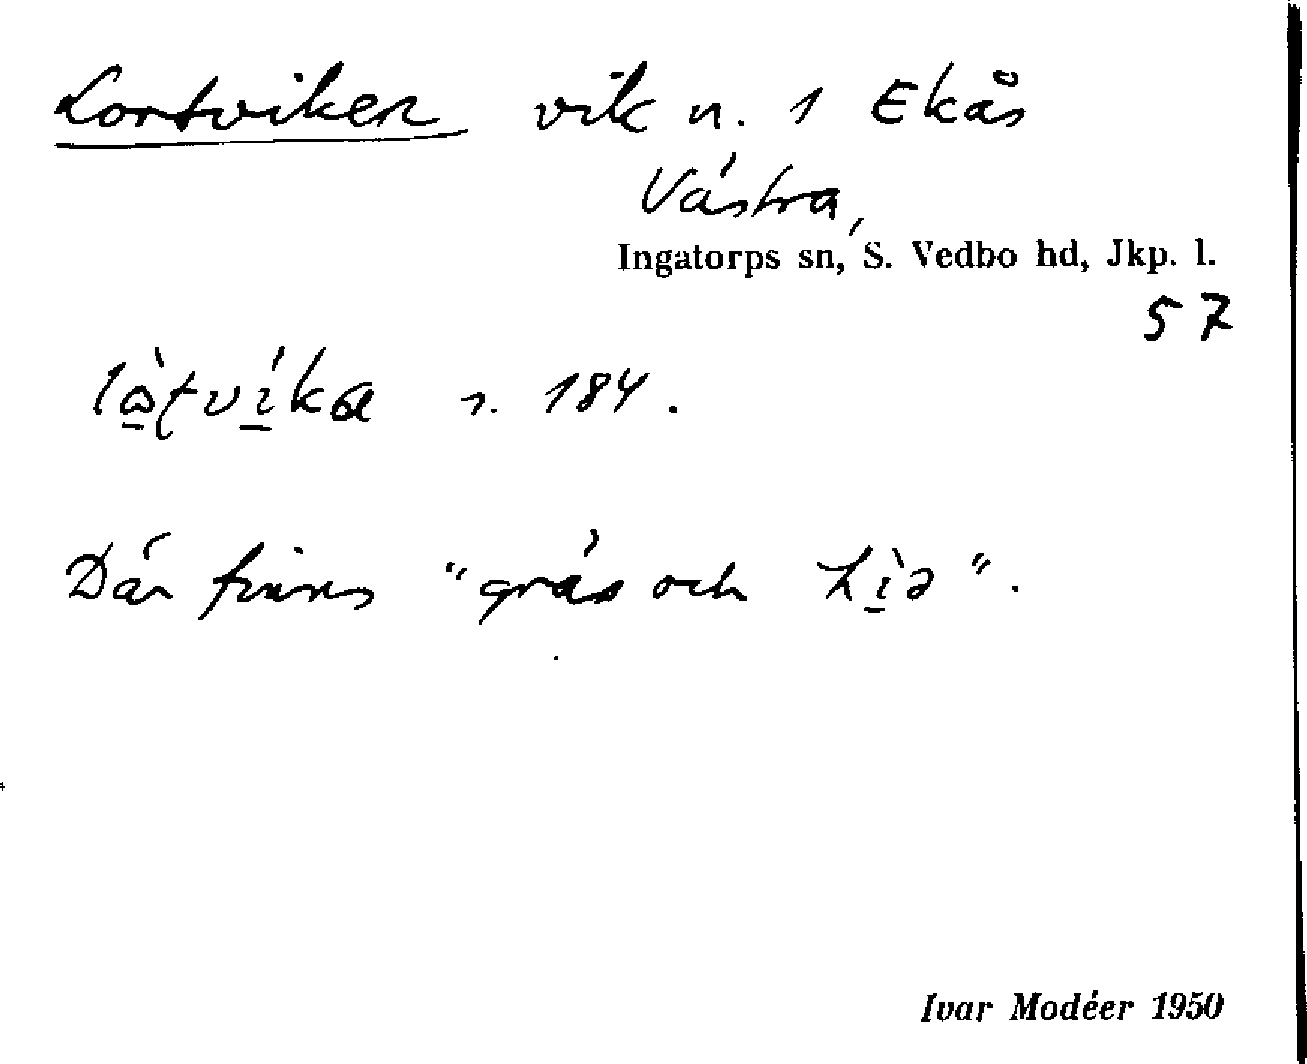 Lortviken vik n. 1 Ekås
Västra,
Ingatorps sn, S. Vedbo hd, Jkp. l.
57
184.
Där finns "gräs och
Ivar Modéer 1950